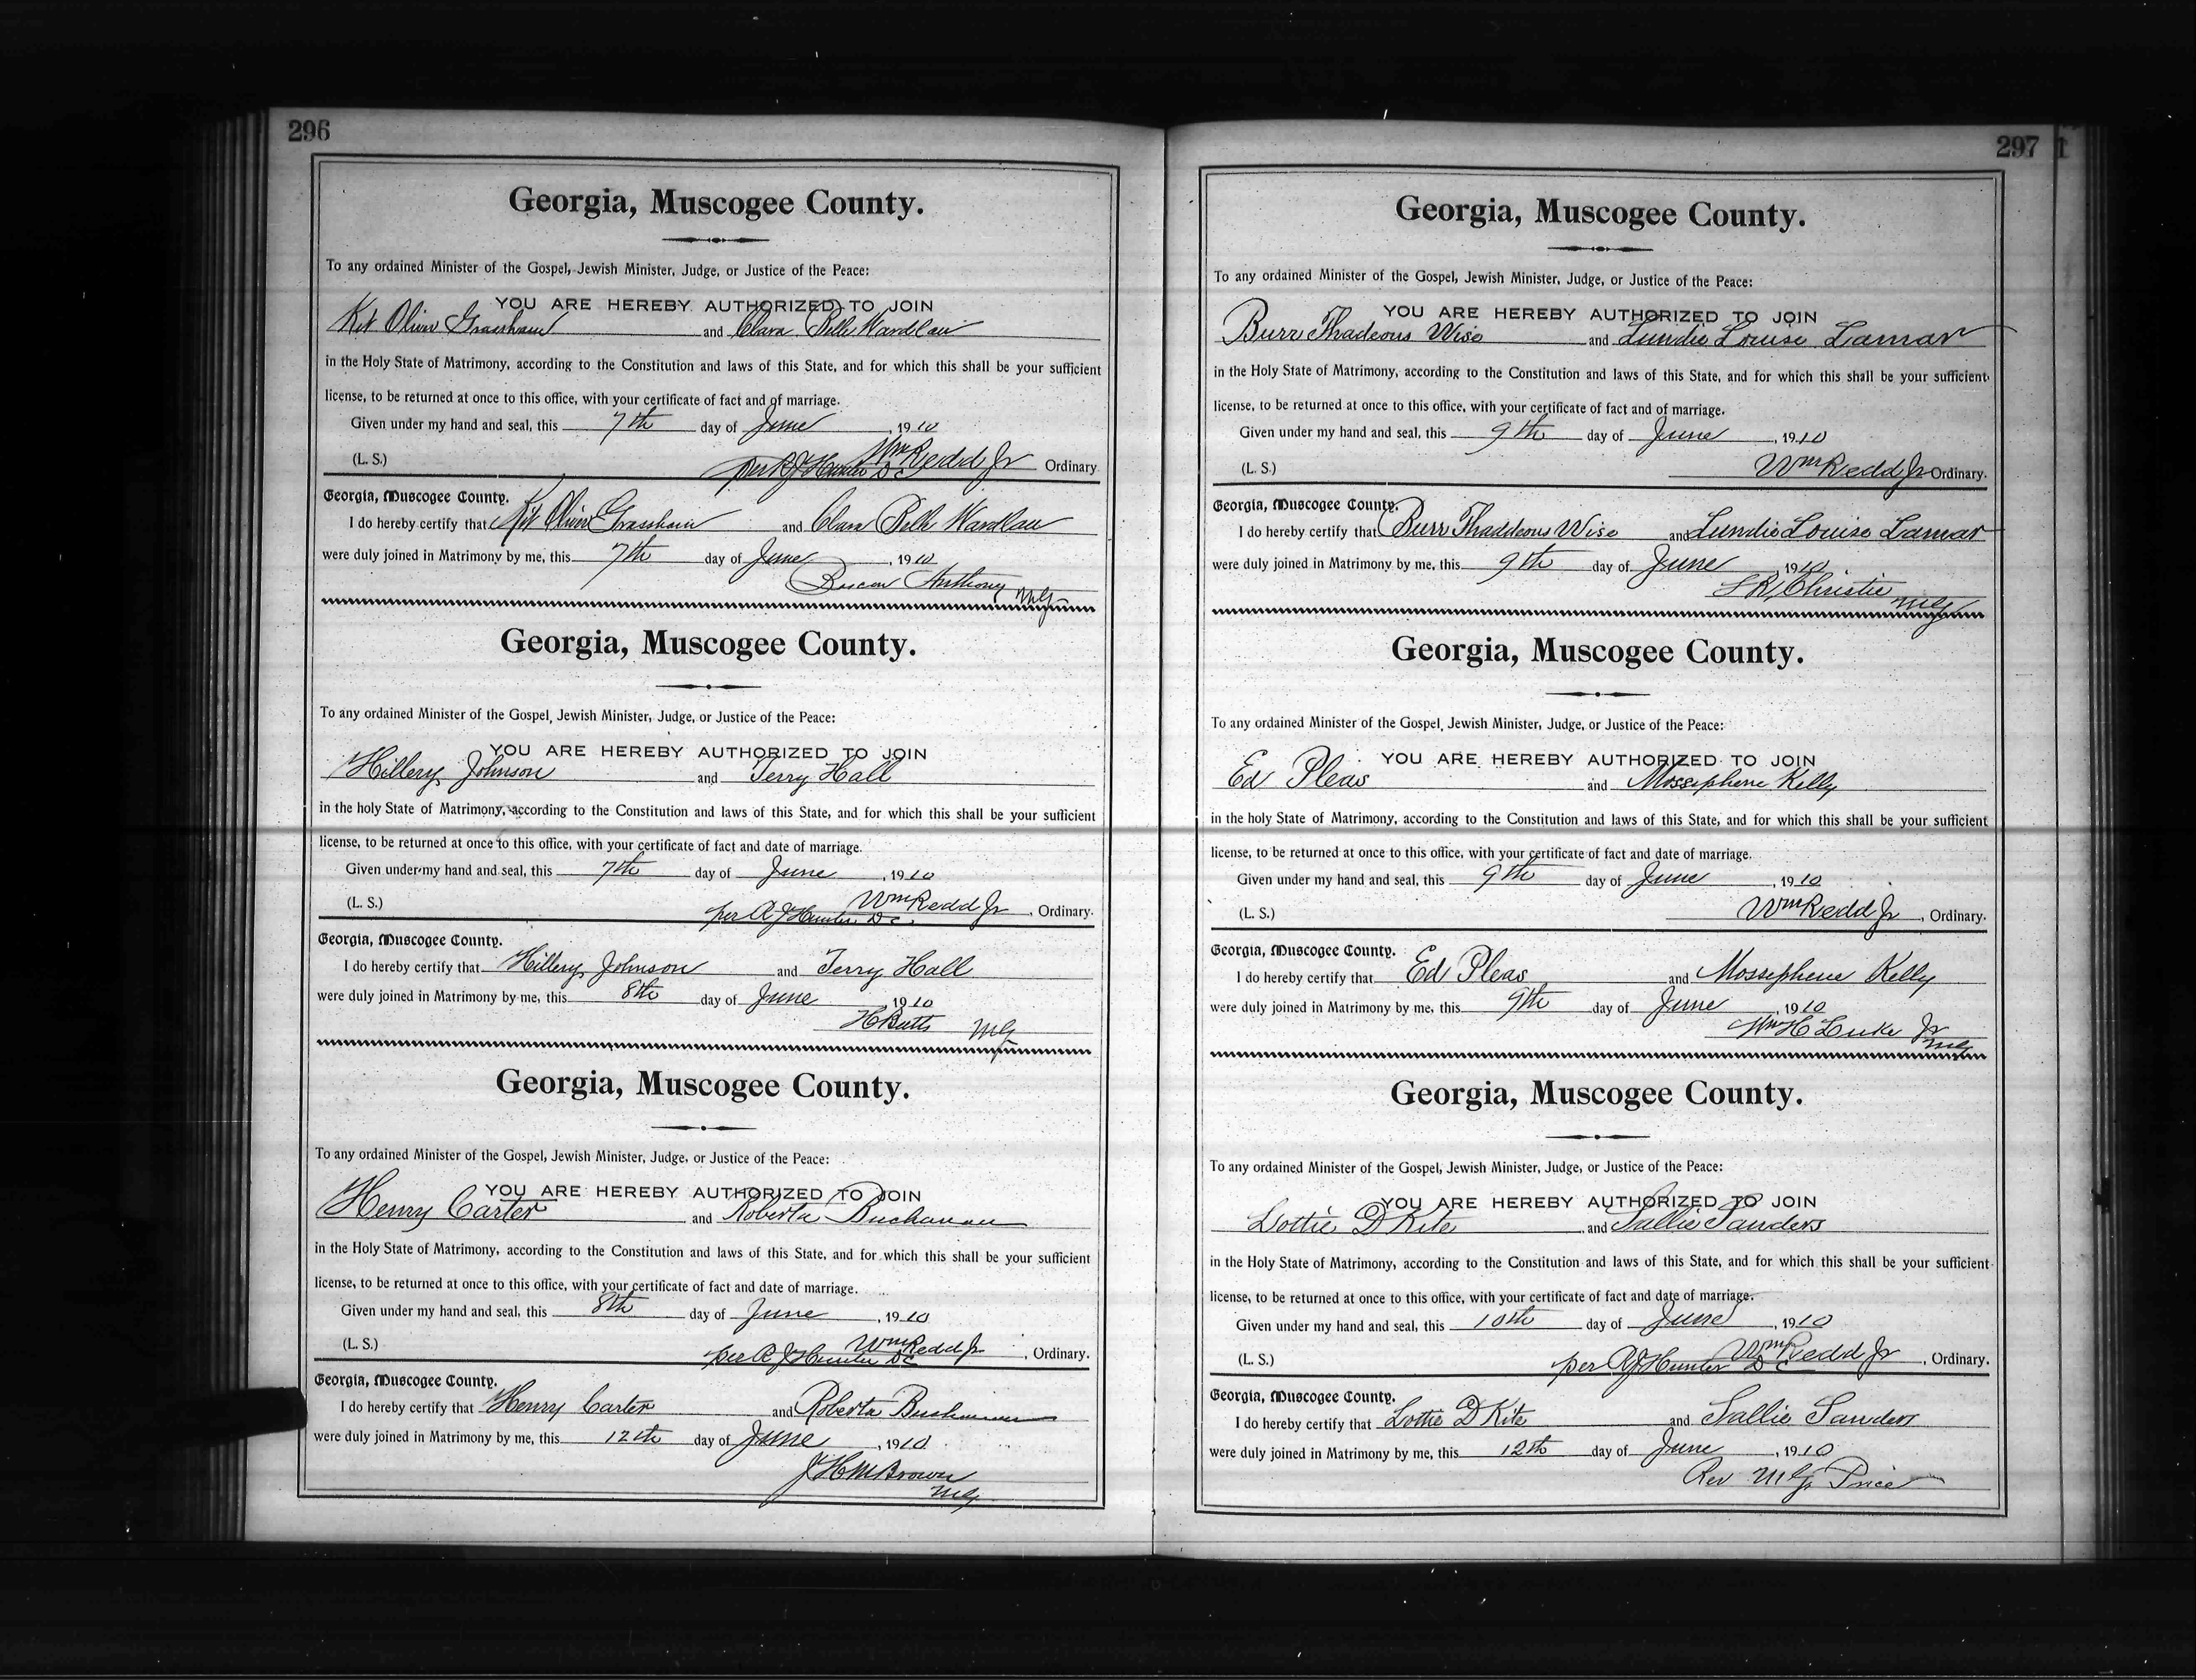 296
Georgia, Muscogee County.
To any ordained Minister of the Gospel, Jewish Minister, Judge, or Justice of the Peace:
YOU ARE HEREBY AUTHORIZED TO JOIN
Kit Oliver and Clara Belle Wardlaw
in the Holy State of Matrimony, according to the Constitution and laws of this State, and for which this shall be your sufficient
license, to be returned at once to this office, with your certificate of fact and of marriage.
Given under my hand and seal, this 7th day of June, 1910
Wm Redd Jr
(L. S.) per R J Hunter D C Ordinary.
Georgia, Muscogee County.
I do hereby certify that Kit Oliver and Clara Belle Wardlaw
were duly joined in Matrimony by me, this 7th day of June, 1910
Anthony MG
Georgia, Muscogee County.
To any ordained Minister of the Gospel, Jewish Minister, Judge, or Justice of the Peace:
YOU ARE HEREBY AUTHORIZED TO JOIN
Hillery Johnson and Terry Hall
in the holy State of Matrimony, according to the Constitution and laws of this State, and for which this shall be your sufficient
license, to be returned at once to this office, with your certificate of fact and date of marriage.
Given under my hand and seal, this 7th day of June, 1910
Wm Redd Jr
(L. S.) per R J Hunter D C, Ordinary.
Georgia, Muscogee County.
I do hereby certify that Hillery Johnson and Terry Hall
were duly joined in Matrimony by me, this 8th day of June, 1910
H Butts MG
Georgia, Muscogee County.
To any ordained Minister of the Gospel, Jewish Minister, Judge, or Justice of the Peace:
YOU ARE HEREBY AUTHORIZED TO JOIN
Henry Carter and Roberta Buchanan
in the Holy State of Matrimony, according to the Constitution and laws of this State, and for which this shall be your sufficient
license, to be returned at once to this office, with your certificate of fact and date of marriage.
Given under my hand and seal, this 8th day of June, 1910
Wm Redd Jr
(L. S.) per R J Hunter D C, Ordinary.
Georgia, Muscogee County.
I do hereby certify that Henry Carter and Roberta Buchanan
were duly joined in Matrimony by me, this 12th day of June, 1910
J H M Brown
MG
297
Georgia, Muscogee County.
To any ordained Minister of the Gospel, Jewish Minister, Judge, or Justice of the Peace:
YOU ARE HEREBY AUTHORIZED TO JOIN
Burr Thadeous Wise and Lundie Louise Lamar
in the Holy State of Matrimony, according to the Constitution and laws of this State, and for which this shall be your sufficient
license, to be returned at once to this office, with your certificate of fact and of marriage.
Given under my hand and seal, this 9th day of June, 1910
(L. S.) Wm Redd Jr Ordinary.
Georgia, Muscogee County.
I do hereby certify that Burr Thaddeous Wise and Lundie Louise Lamar
were duly joined in Matrimony by me, this 9th day of June, 1910
L R Christie MG
Georgia, Muscogee County.
To any ordained Minister of the Gospel, Jewish Minister, Judge, or Justice of the Peace:
YOU ARE HEREBY AUTHORIZED TO JOIN
Ed Pleas and Mossephene Kelly
in the holy State of Matrimony, according to the Constitution and laws of this State, and for which this shall be your sufficient
license, to be returned at once to this office, with your certificate of fact and date of marriage.
Given under my hand and seal, this 9th day of June, 1910
(L. S.) Wm Redd Jr, Ordinary.
Georgia, Muscogee County.
I do hereby certify that Ed Pleas and Mossephene Kelly
were duly joined in Matrimony by me, this 9th day of June, 1910
Wm H Luke Jr
MG
Georgia, Muscogee County.
To any ordained Minister of the Gospel, Jewish Minister, Judge, or Justice of the Peace:
YOU ARE HEREBY AUTHORIZED TO JOIN
Lottie D Kite and Sallie Sanders
in the Holy State of Matrimony, according to the Constitution and laws of this State, and for which this shall be your sufficient
license, to be returned at once to this office, with your certificate of fact and date of marriage.
Given under my hand and seal, this 10th day of June, 1910
Wm Redd Jr
(L. S.) per R J Hunter D C, Ordinary.
Georgia, Muscogee County.
I do hereby certify that Lottie D Kite and Sallie Sanders
were duly joined in Matrimony by me, this 12th day of June, 1910
Rev M G Price